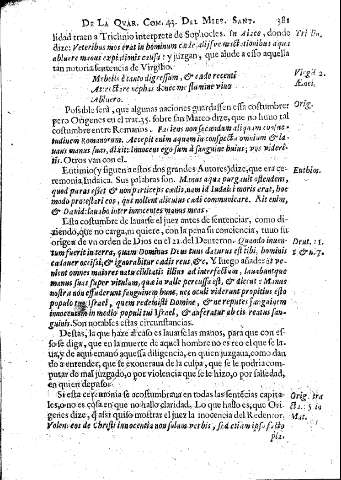 DE LA QVAR. COM. 43. DEL MIER. SANT. 381
lidad traen a Triclinio interprete de Sophocles. In Aiace, donde
dize: Veteribus mos erat in hominum cæde alijsve mactationibus aquas
abluere manus expiationis causa: y juzgan, que alude a esso aquella
tan notoria sentencia de Virgilio.
Virgil. 2.
Æneï.
Me bello è tanto digressum, & cæde recenti
Attrectare nephas donec me flumine vivo
Abluero.
Possible será, que algunas naciones guardassen essa costumbre:
Orig.
pero Origenes en el trat. 35. sobre san Marco dize, que no huuo tal
costumbre entre Romanos. Faciens non secundum aliquam consue-
tudinem Romanorum. Accepit enim aquam in conspectu omnium & la-
uans manus suas, dixit: Innocens ego sum à sanguine huius; vos videri-
tis. Otros van con el.
Eutimio (y siguen a estos dos grandes Autores) dize, que era ce-
Euthim.
remonia Iudaica. Sus palabras son. Manus aqua purgauit ostendens,
quod puras esset & non particeps cædis, nam id Iudaici moris erat, hoc
modo protestari eos, qui nollent alicuius cædi communicare. Ait enim,
& Dauid: lauabo inter innocentes manus meas.
Esta costumbre de lauarse el juez antes de sentenciar, como di-
ziendo, que no carga, ni quiere, con la pena su conciencia, tuuo su
origen de vn orden de Dios en el 21. del Deuteron. Quando inuen-
Deut. 21.
tum fuerit in terra, quam Dominus Deus tuus daturus est tibi, hominis
cadauer occisi, & ignorabitur cædis reus, &c. Y luego añade: & ve-
nient omnes maiores natu ciuitatis illius ad interfectum, lauabuntque
manus suas super vitulam, quæ in valle percussa est, & dicent: Manus
nostræ non effuderunt sanguinem hunc, nec oculi viderunt propitius esto
populo tuo Israel, quem redemisti Domine, & ne reputes sanguinem
innocentem in medio populi tui Israel, & auferatur ab eis reatus san-
guinis. Son notables estas circunstancias.
Destas, la que haze al caso es lauarse las manos, para que con es-
so se diga, que en la muerte de aquel hombre no es reo el que se la-
ua, y de aqui emanò aquessa diligencia, en quien juzgaua, como dan-
do a entender, que se exoneraua de la culpa, que se le podria com-
putar de mal juzgado, o por violencia que se le hizo, o por falsedad,
en quien depuso.
Si esta ceremonia se acostumbrara en todas las sentẽcias capita-
Orig. tra
les, o no es cosa en que no hallo claridad. Lo que hallo es, que Ori-
genes dize, q̃ assi quiso mostrar el juez la inocencia del Redentor.
Mat.
Volens eos de Christi innocentia non solum verbis, sed etiam ipso facto
pla.